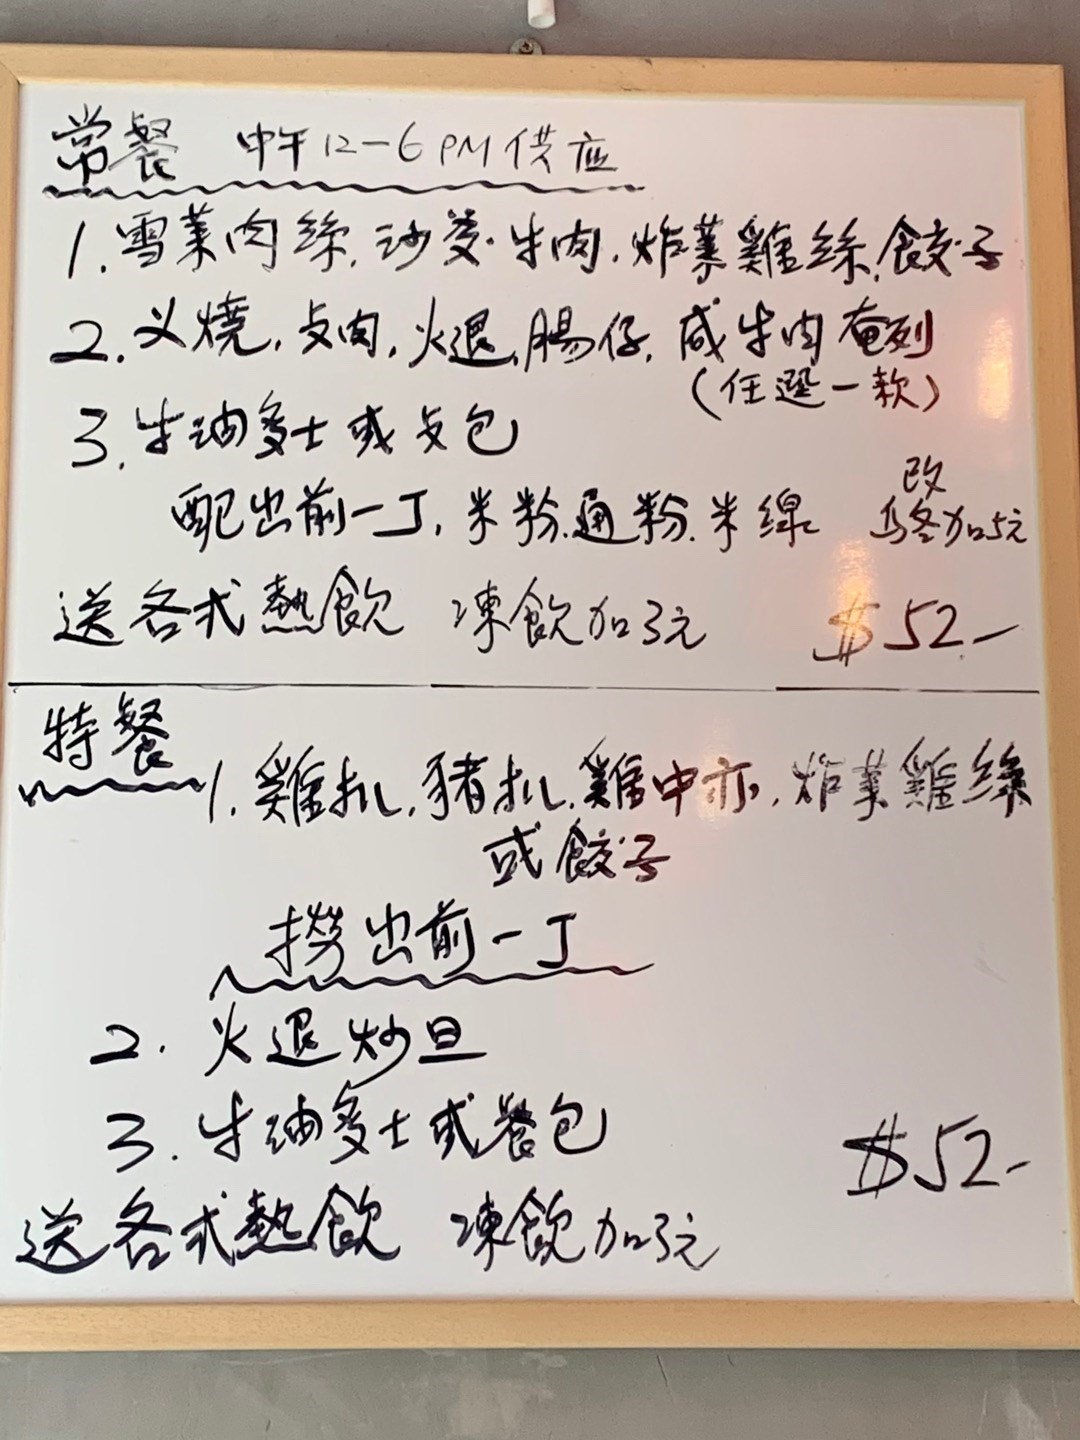 常餐 中午12-6PM供应
1.雪菜肉絲,沙爹牛肉,炸菜雞絲,餃子
2.义燒,卤肉,火退,腸仔,咸牛肉奄列
(任選一款)
3.牛油多士或卤包
配出前一丁,米粉.通粉.米線 改烏冬加5元
送各式熱飲 凍飲加3元 $52.-
特餐
1.雞扒,豬扒,雞中亦,炸菜雞絲
或餃子
撈出前一丁
2.火退炒旦
3.牛油多士或餐包
$52-
送各式熱飲 凍飲加3元